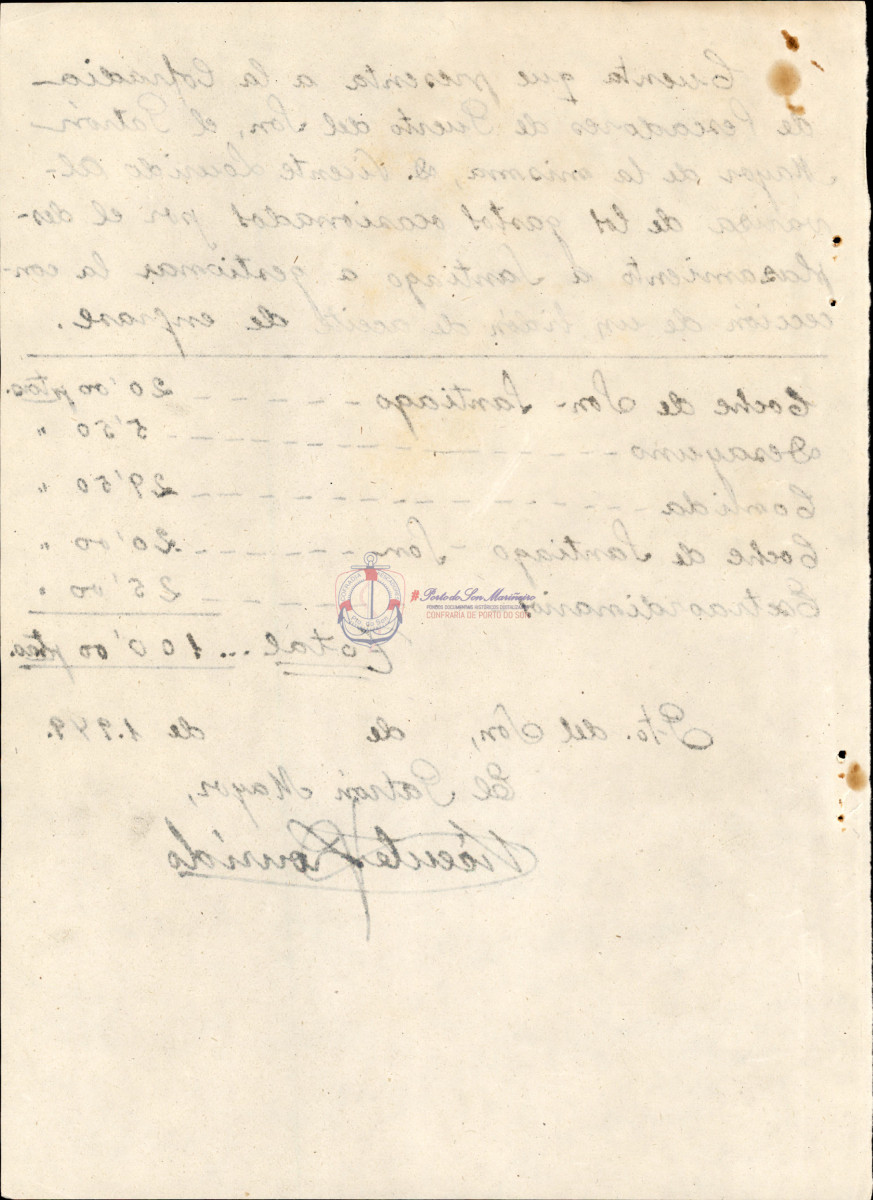 Cuenta que presenta a la Cofradia
de Pescadores de Puerto del Son, el Patrón
Mayor de la misma, D. Vicente Lourido Al-
variza de los gastos ocasionados por el des-
plazamiento a Santiago a gestionar la con-
cección de un bidón de aceite de engrase.
Coche de Son - Santiago - - - - - - 20'00 ptas.
Desayuno - - - - - - - - - - - 5'50 "
Comida - - - - - - - - - - - 29'50 "
Coche de Santiago - Son - - - - - 20'00 "
Extraordinarios - - - 25'00 "
Total ... 100'00 ptas.
Pto. del Son, de de 1.949.
El Patrón Mayor,
Vicente Lourido
#Porto do Son Mariñeiro
FONDOS DOCUMENTAIS HISTÓRICOS DIXITALIZADOS
CONFRARIA DE PORTO DO SON